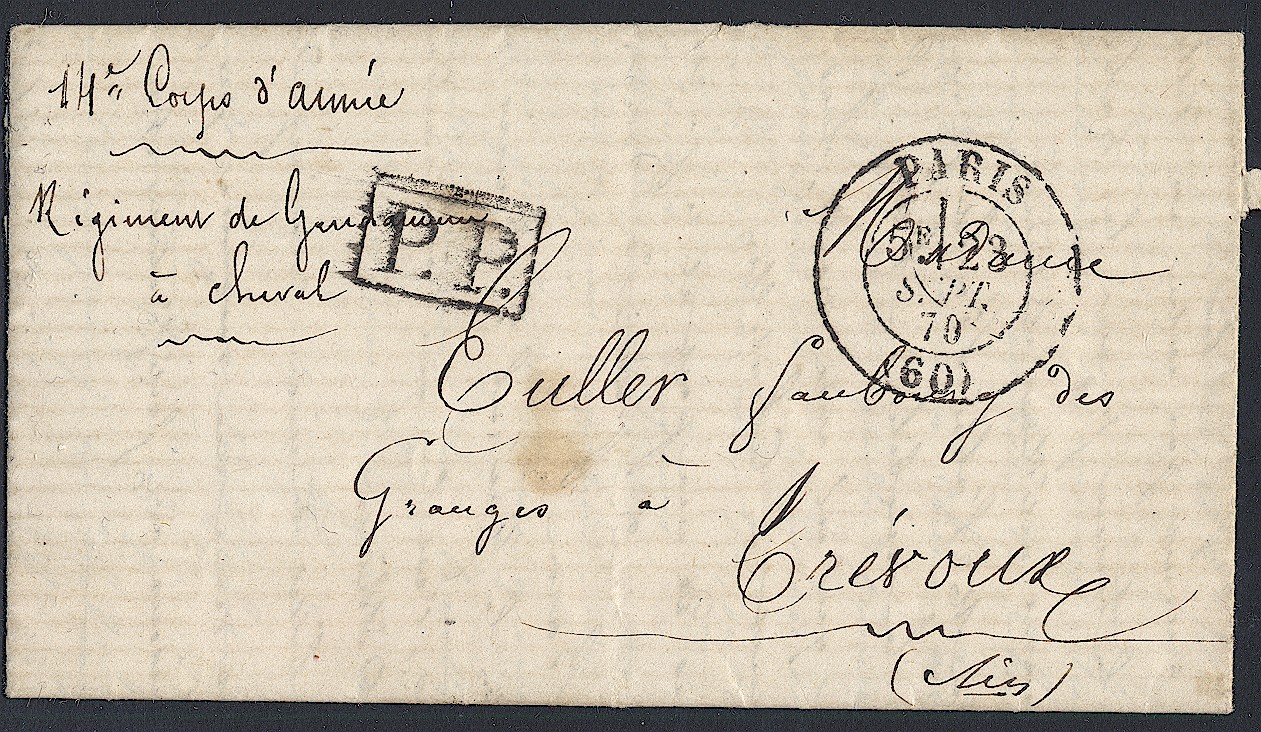 14e Corps d'armée
Régiment de Gendarmerie
à cheval
P.P.
PARIS
5E 23
SEPT.
70
(60)
Madame
Culler faubourg des
Granges à
Trévoux
(Ain)